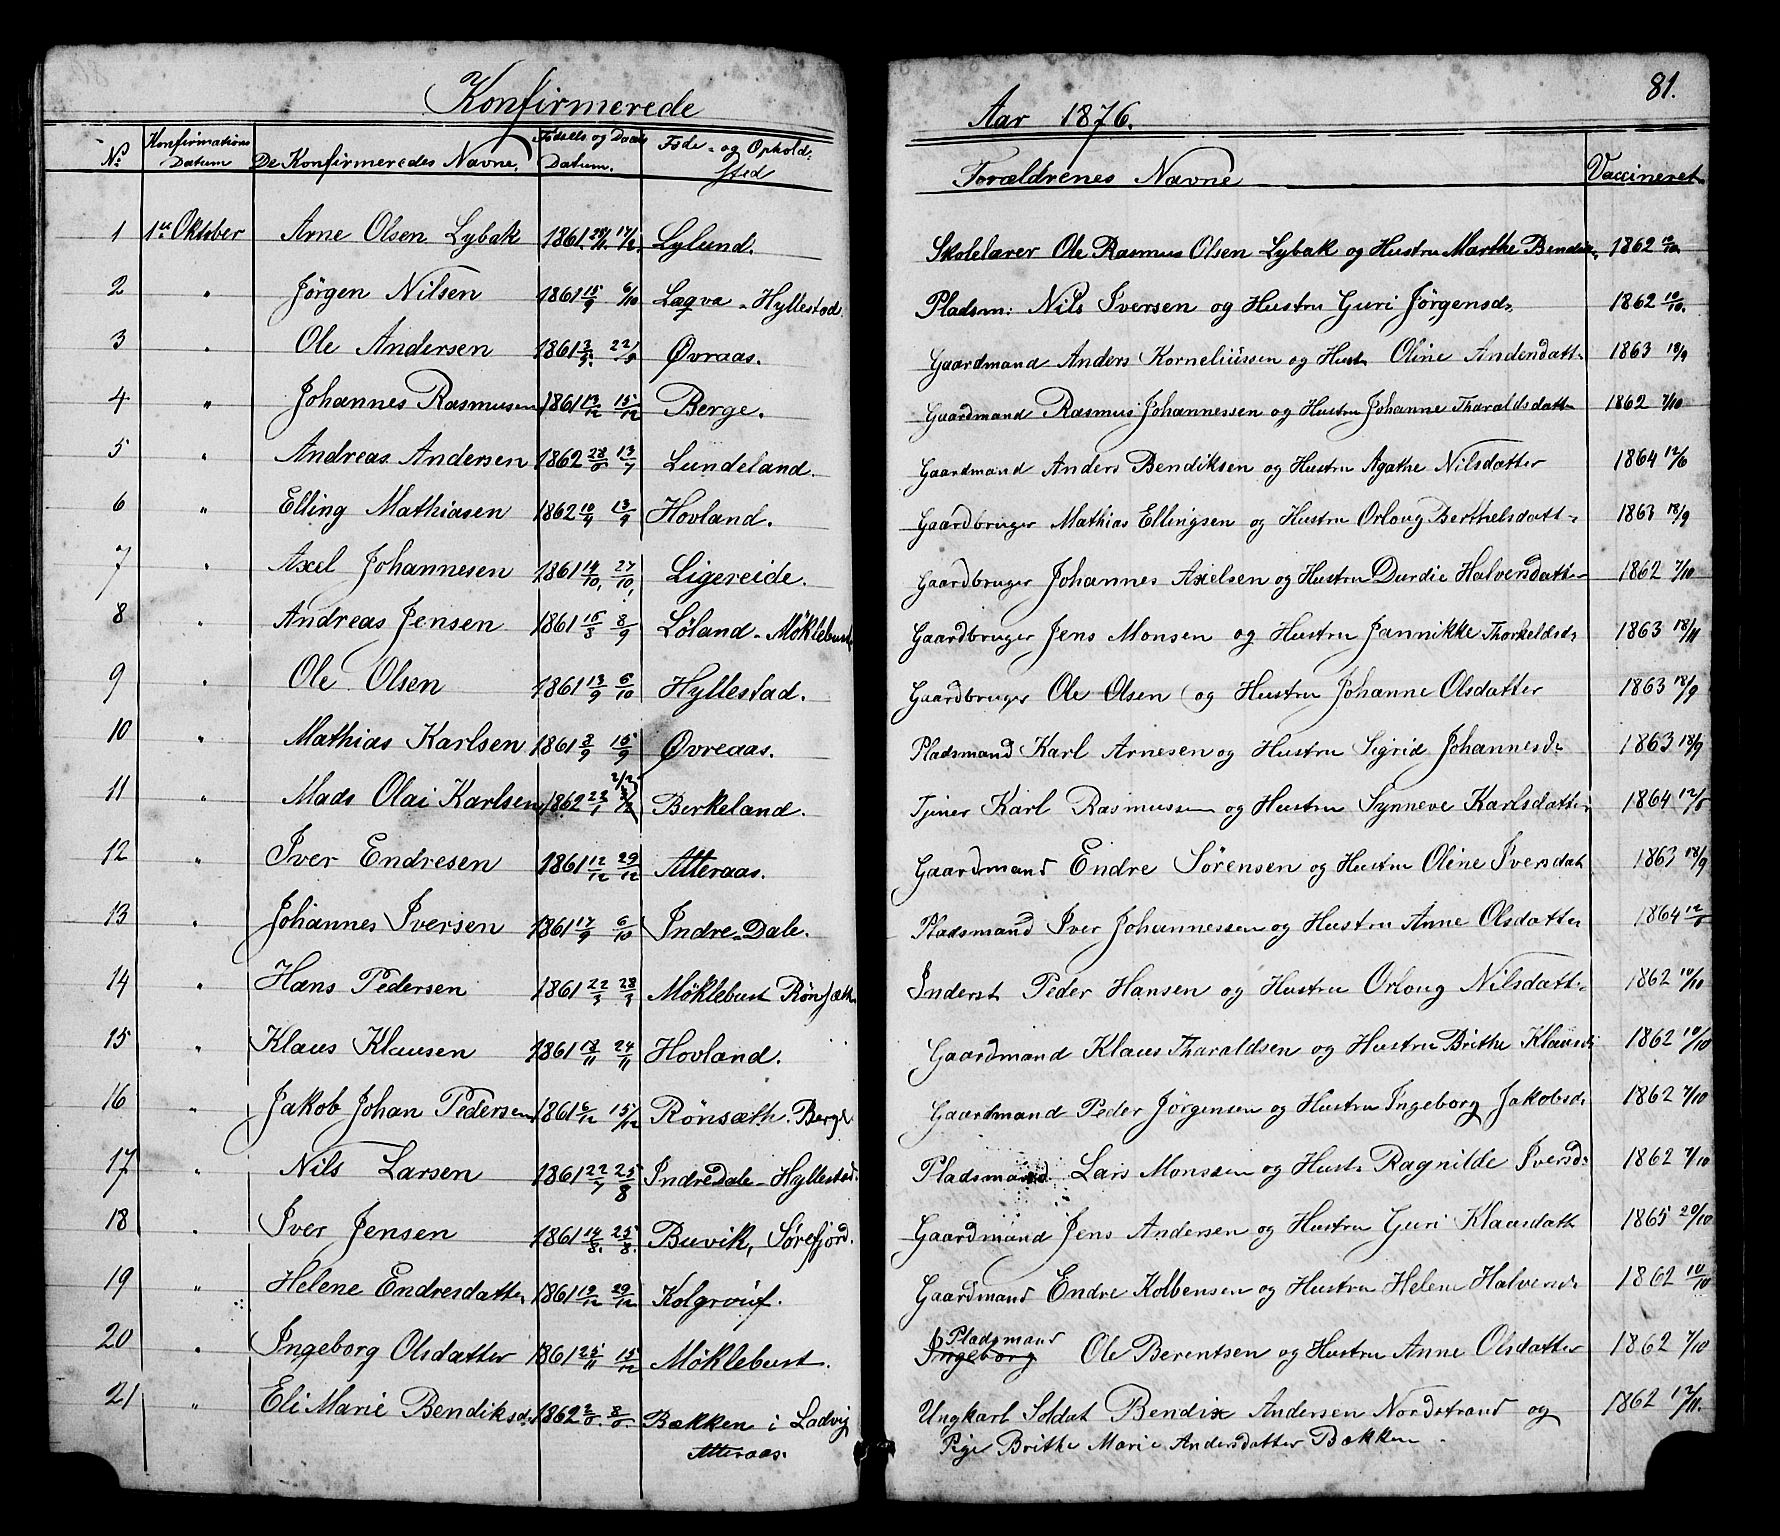 81.
Konfirmerede Aar 1876.
No. Konfirmations Datum De Konfirmeredes Navne. Fødsels og Daabs Datum. Føde- og Ophold-sted Forældrenes Navne Vaccineret
1 1ste Oktober Arne Olsen Lybak 1861 Lylund. Skolelærer Ole Rasmus Olsen Lybak og Hustru Marthe 1862
2 " Jörgen Nilsen 1861 15/9 6/10 Lægva - Hyllestad. Pladsm: Nils Iversen og Hustru Guri Jörgensd. 1862 10/10.
3 " Ole Andersen 1861 Øvraas. Gaardmand Anders Korneliussen og Hust. Oline 1863 18/9
4 " Johannes Rasmusen 1861 13/12 15/12 Berge. Gaardmand Rasmus Johannessen og Hustru Johanne Tharaldsdatt. 1862 7/10
5 " Andreas Andersen 1862 Lundeland. Gaardmand Anders Bendiksen og Hustru Agathe Nilsdatter 1864 12/6
6 " Elling Mathiasen 1862 Hovland. Gaardbruger Mathias Ellingsen og Hustru Orloug Berthelsdatt. 1863 18/9
7 " Axel Johannesen 1861 14/10, 27/10, Ligereide. Gaardbruger Johannes Axelsen og Hustru Durdie Halversdatter 1862 7/10
8 " Andreas Jensen 1861 8/9 Löland - Möklebust Gaardbruger Jens Monsen og Hustru Jannikke Thorkeldsd. 1863 18/11
9 " Ole Olsen 1861 13/9 6/10 Hyllestad. Gaardbruger Ole Olsen og Hustru Johanne Olsdatter 1863 18/9
10 " Mathias Karlsen 1861 15/9 Øvreaas. Pladsmand Karl Arnesen og Hustru Sigrid Johannesd. 1863 18/9
11 " Mads Olai Karlsen 1862 23/1 2/2 Berkeland. Tjener Karl Rasmussen og Hustru Synneve Karlsdatter 1864
12 " Iver Endresen 1861 12/12 29/12 Atteraas. Gaardmand Endre Sörensen og Hustru Oline Iversdat 1863 18/9
13 " Johannes Iversen 1861 17/9 6/10 Indre-Dale. Pladsmand Iver Johannessen og Hustru Anne Olsdatter 1864
14 " Hans Pedersen 1861 Möklebust Inderst Peder Hansen og Hustru Orloug Nilsdatt. 1862 10/10
15 " Klaus Klausen 1861 18/11 24/11 Hovland. Gaardmand Klaus Tharaldsen og Hustru Brithe Klausd. 1862 10/10
16 " Jakob Johan Pedersen 1861 6/12 15/12 Rönsæth. Berge. Gaardmand Peder Jörgensen og Hustru Ingeborg Jakobsd. 1862 7/10
17 " Nils Larsen 1861 22/7 25/8 Indredale - Hyllestad. Pladsmand Lars Monssen og Hust. Ragnilde Iversd. 1862 7/10
18 " Iver Jensen 1861 14/8. 25/8. Buvik, Sörefjord. Gaardmand Jens Andersen og Hustru Guri Klausdatt 1865 20/10
19 " Helene Endresdatter 1861 29/12 Kolgrouf. Gaardmand Endre Kolbensen og Hustru Helene Halversd. 1862 10/10
20 " Ingeborg Olsdatter 1861 25/11 15/12 Möklebust. Ingeborg Pladsmand Ole Berentsen og Hustru Anne Olsdatter 1862 7/10
21 " Eli Marie Bendiksd. 1862 Bækken i Ladvig Ungkarl Soldat Bendix Andersen Nordstrand og 1862 12/11.
Atteraas. Pige Brithe Marie Andersdatter Bækken.